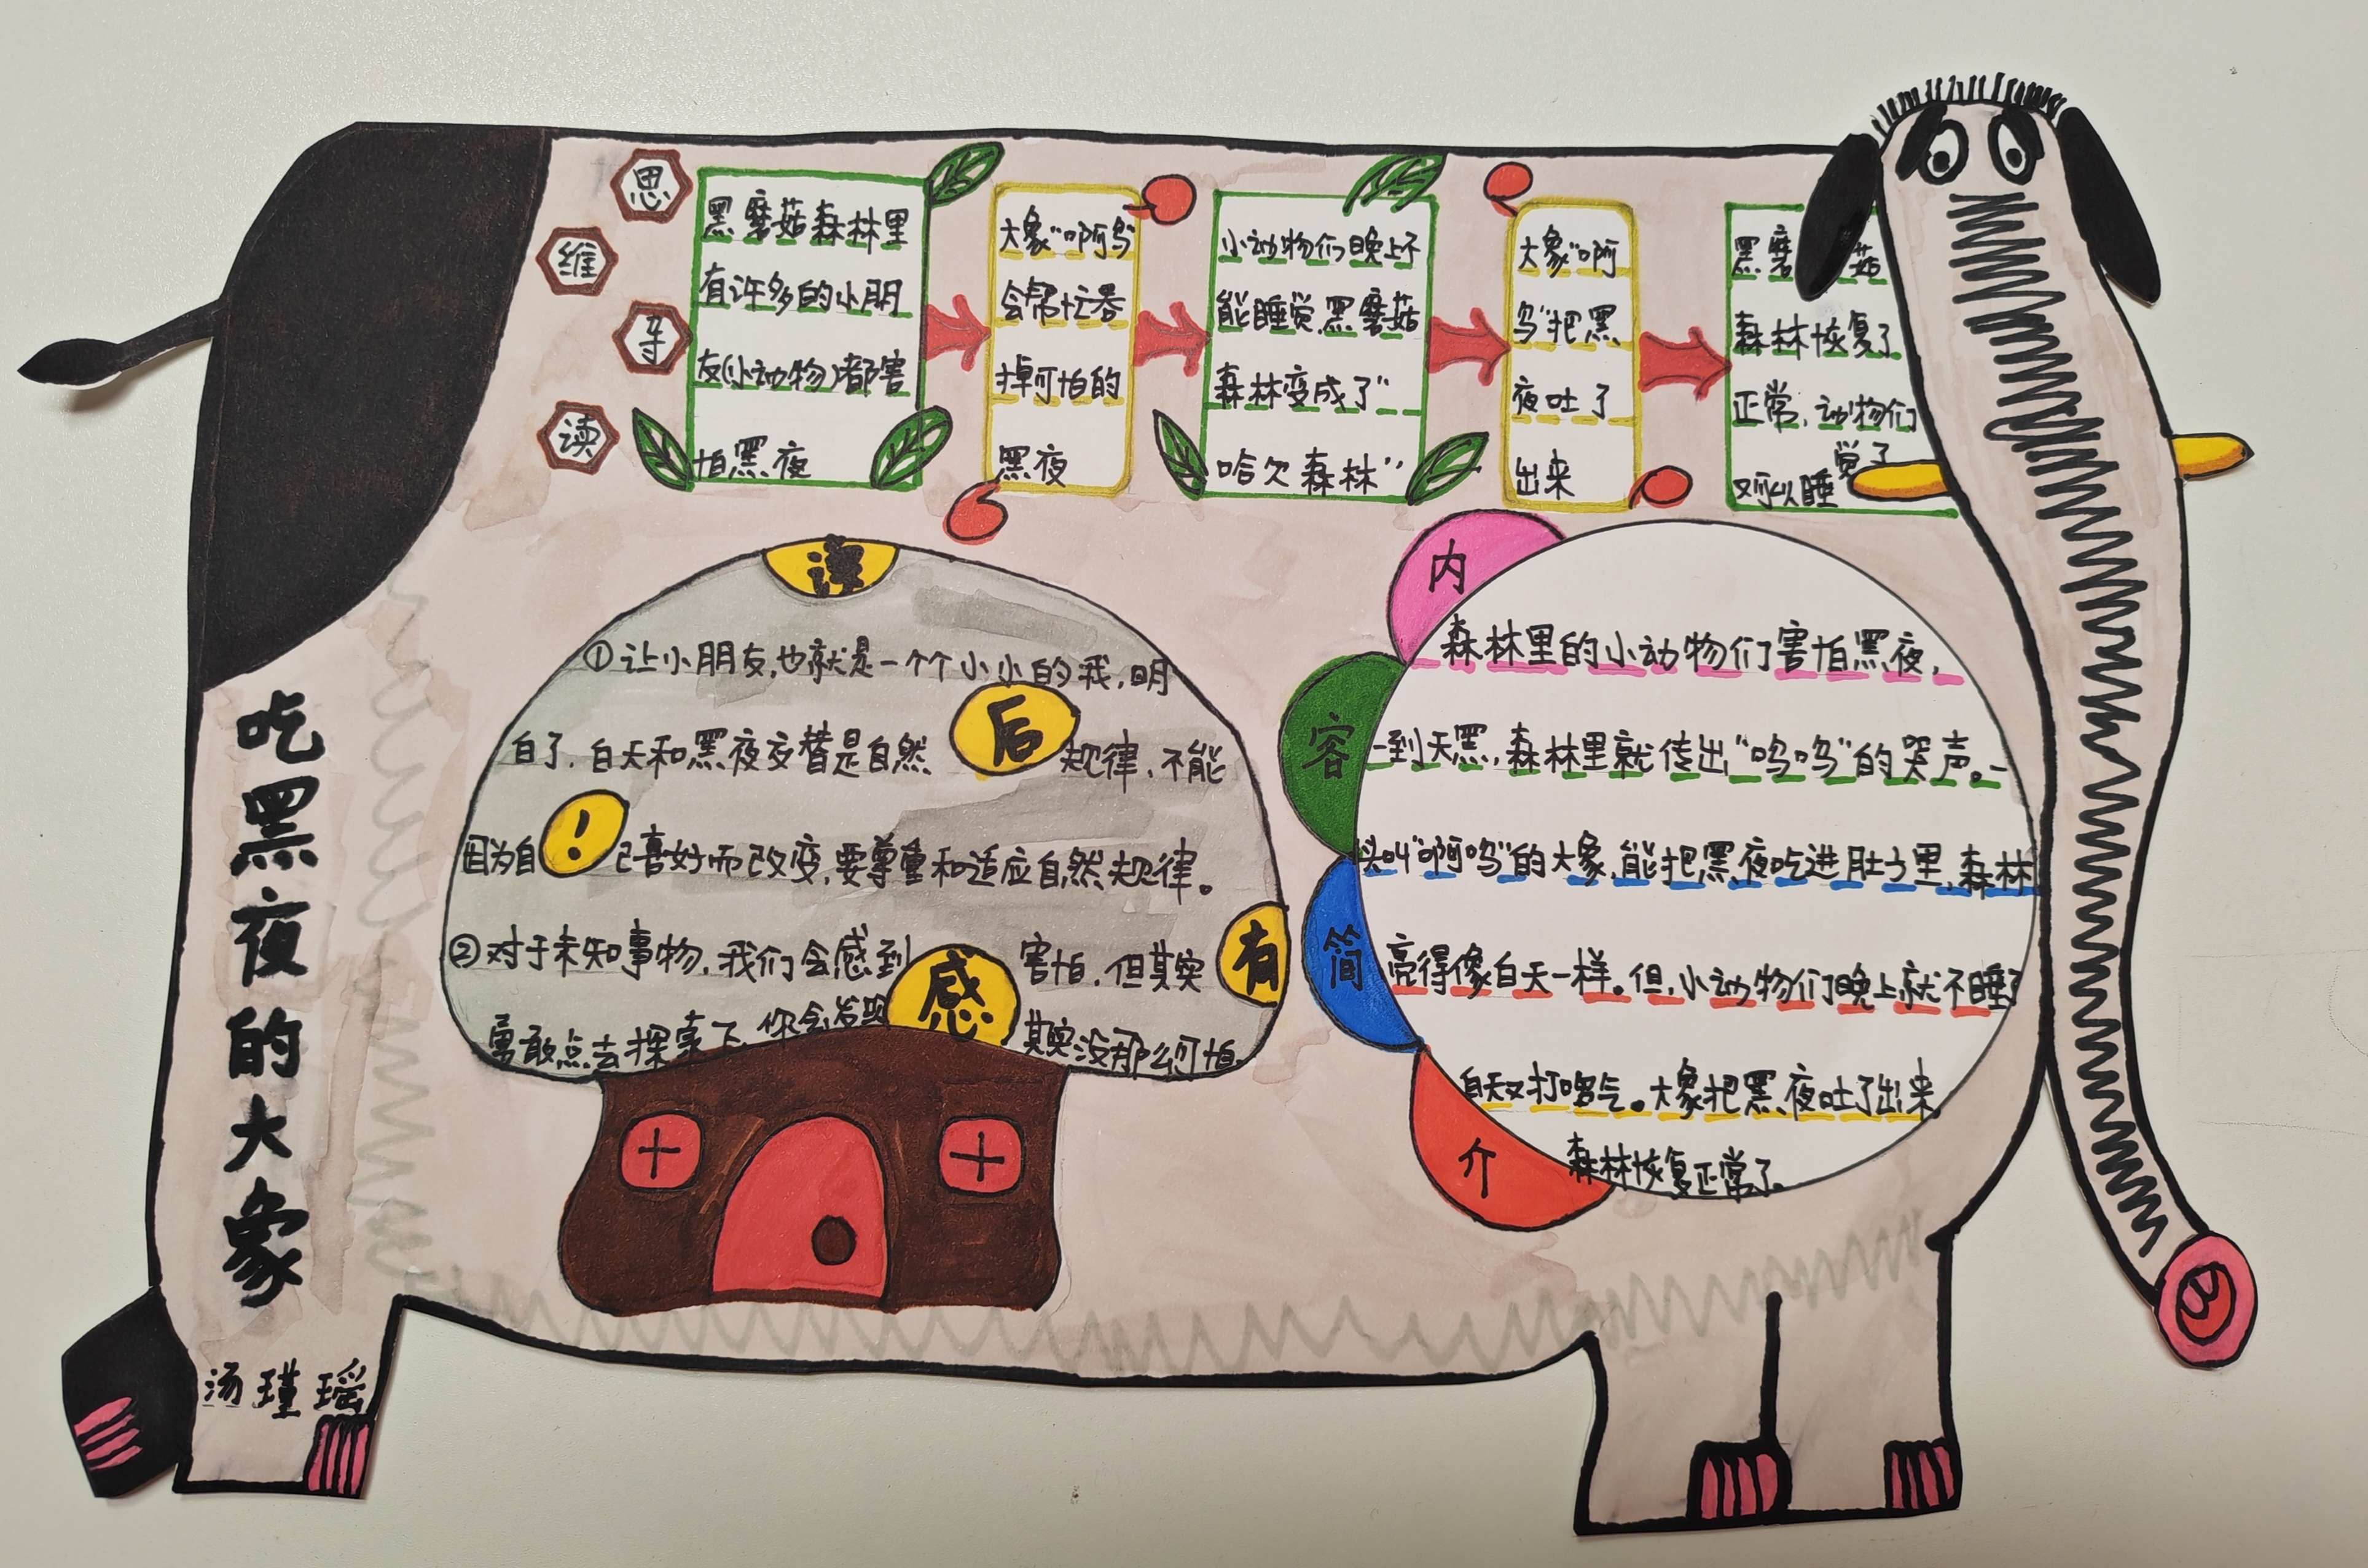 思
维
导
读
黑磨菇森林里
有许多的小朋
友(小动物)都害
怕黑夜
大象"啊呜"
会帮忙吞
掉可怕的
黑夜
小动物们晚上不
能睡觉,黑磨菇
森林变成了"
哈欠森林"
大象"啊
呜"把黑
夜吐了
出来
黑磨菇
森林恢复了
正常,动物们
又可以睡觉了
吃黑夜的大象
汤瑾瑶
读
后
有
感
!
①让小朋友,也就是一个个小小的我,明
白了,白天和黑夜交替是自然规律,不能
因为自己喜好而改变,要尊重和适应自然规律。
②对于未知事物,我们会感到害怕,但其实
勇敢点去探索下,你会发现其实没那么可怕。
内
容
简
介
森林里的小动物们害怕黑夜,
一到天黑,森林里就传出"呜呜"的哭声。一
头叫"啊呜"的大象,能把黑夜吃进肚子里,森林
亮得像白天一样。但,小动物们晚上就不睡了
白天又打哆气。大象把黑夜吐了出来,
森林恢复正常了。